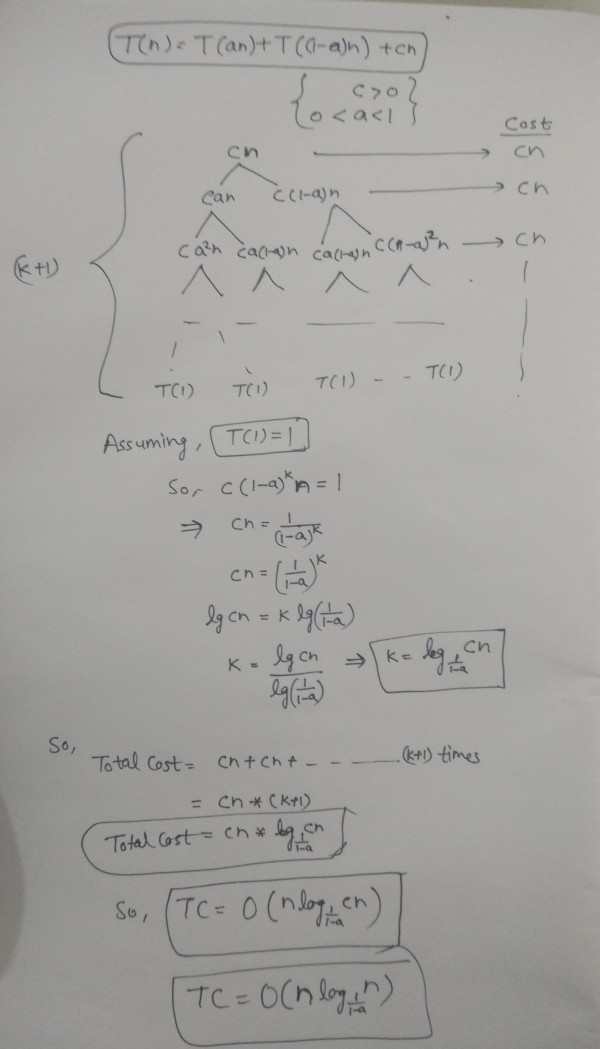 T(n) = T(an) + T((1-a)n) + cn
{ c > 0 }
{ 0 < a < 1 }
Cost
cn → cn
can c(1-a)n → cn
ca²n ca(1-a)n ca(1-a)n c(1-a)²n → cn
(k+1)
T(1) T(1) T(1) - - T(1)
Assuming, T(1) = 1
So, c(1-a)^k n = 1
⇒ cn = 1/(1-a)^k
cn = (1/(1-a))^k
lg cn = k lg(1/(1-a))
k = lg cn / lg(1/(1-a)) ⇒ k = log_{1/(1-a)} cn
So,
Total Cost = cn + cn + - - - —— (k+1) times
= cn * (k+1)
Total Cost = cn * log_{1/(1-a)} cn
So, TC = O(n log_{1/(1-a)} cn)
TC = O(n log_{1/(1-a)} n)